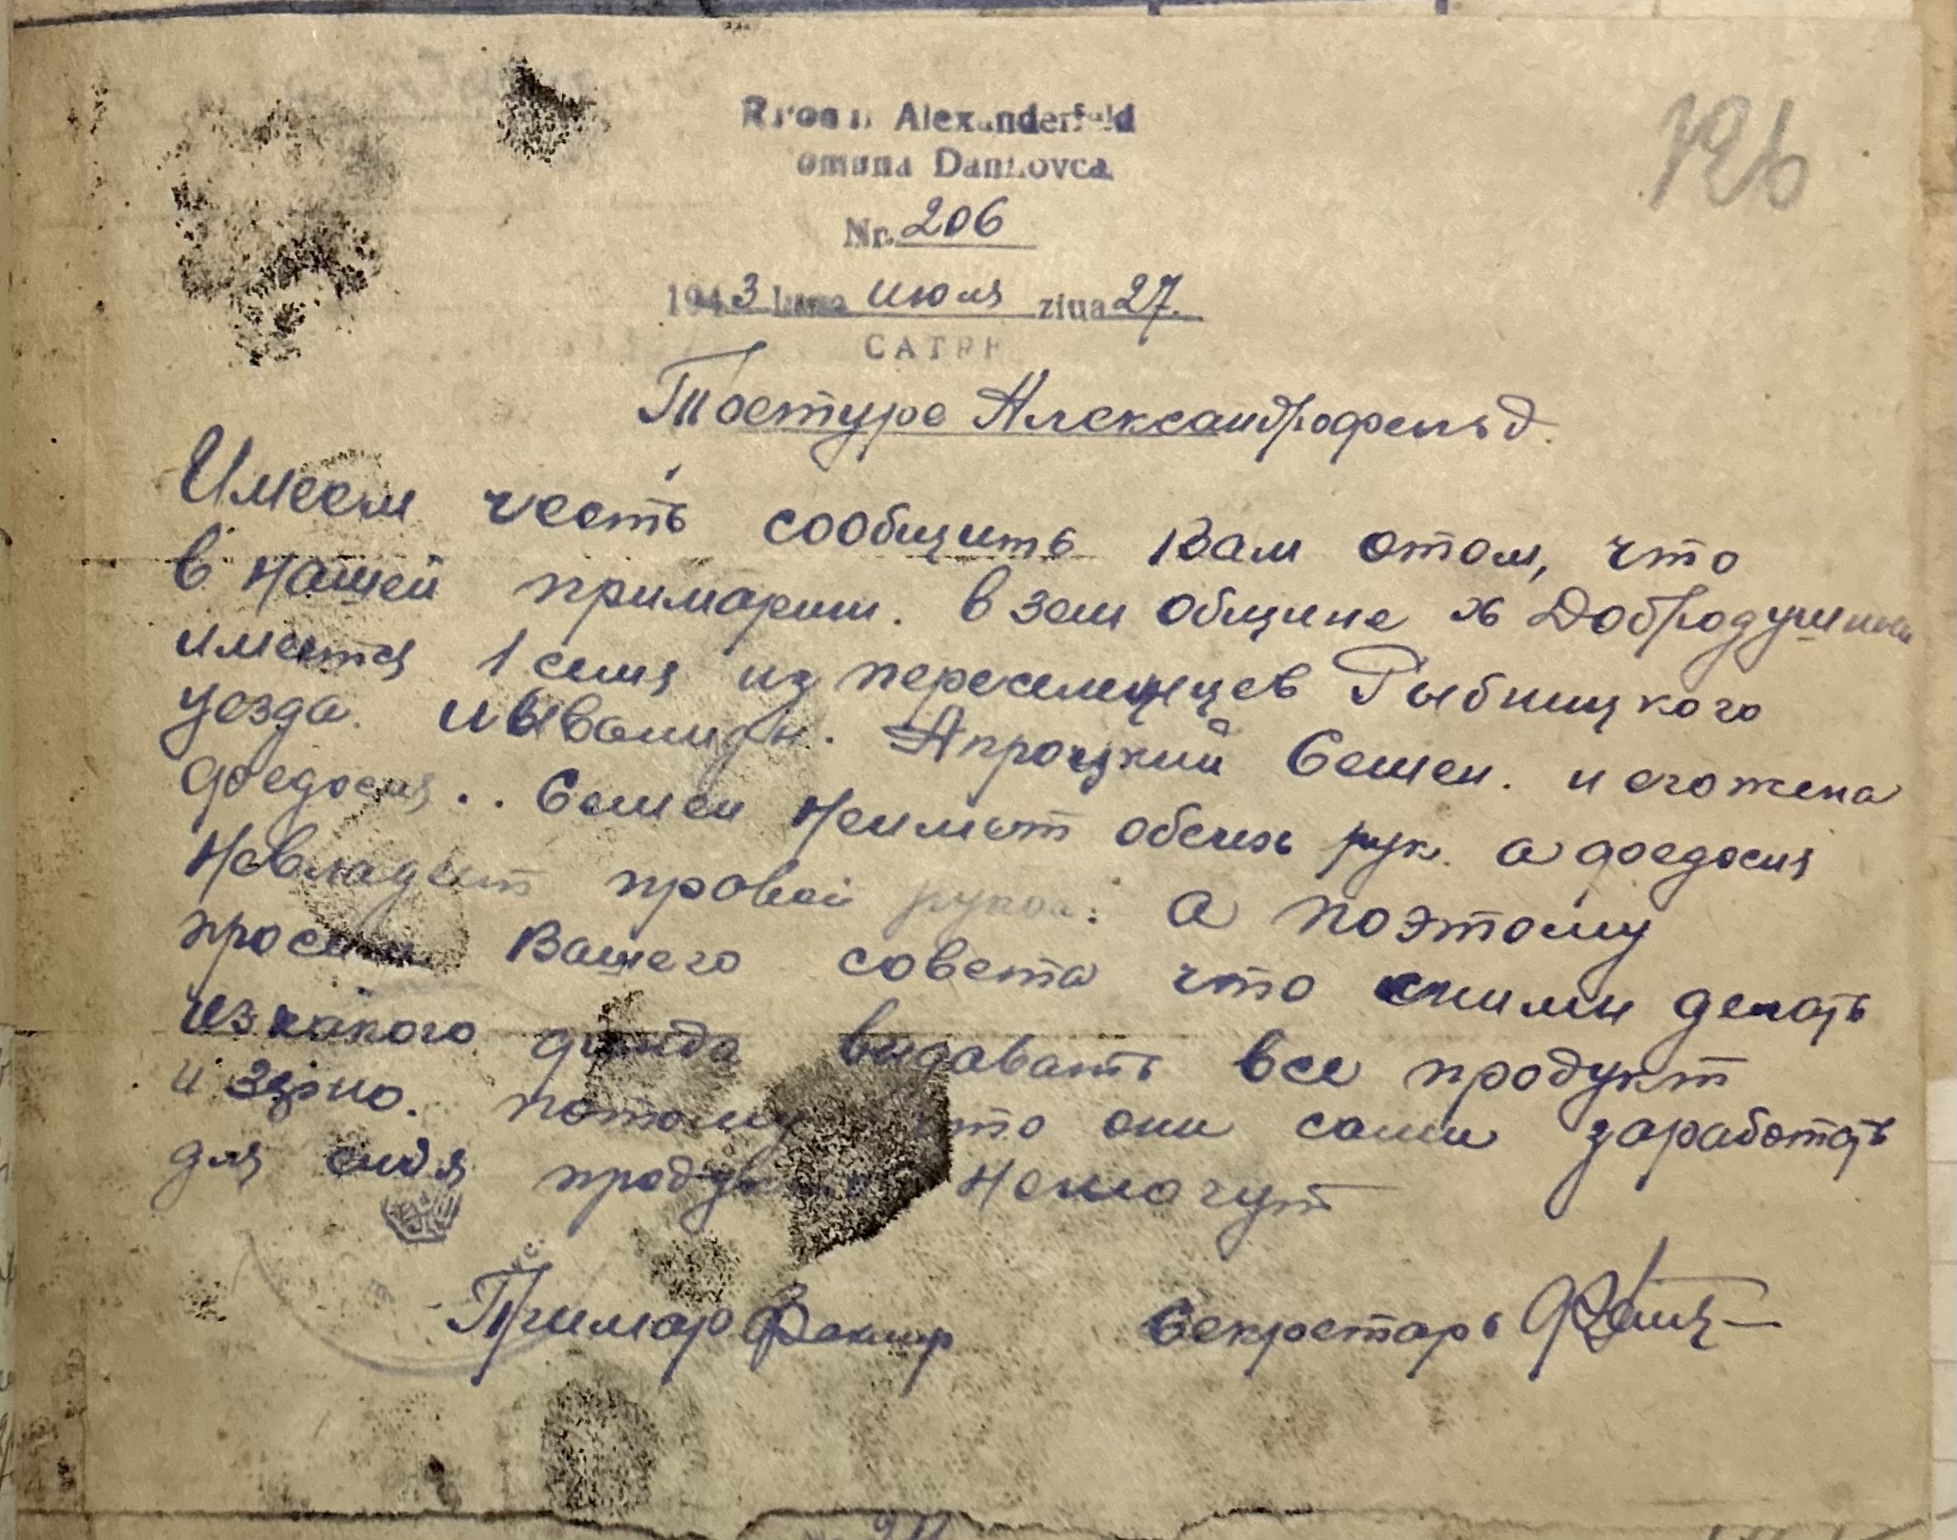 126
Alexanderfeld
omuna Danilovca
Nr. 206
1943 Luna июля ziua 27.
CATRE
Постуре Александрофельд.
Имеем честь сообщить Вам отом, что
в нашей примарии. в зем общине х Добродушино
имеется 1 семя из переселенцев Рыбницкого
уезда. Апроцкий Семен. и егожена
федосия.. Семен неимеет обеих рук. а федосия
невладеет правой рукой. А поэтому
просим Вашего совета что сними делать
изкакого фонда видавать все продукт
и зерно. потому что они сами заработать
для сибя немогут
Примар Секретарь